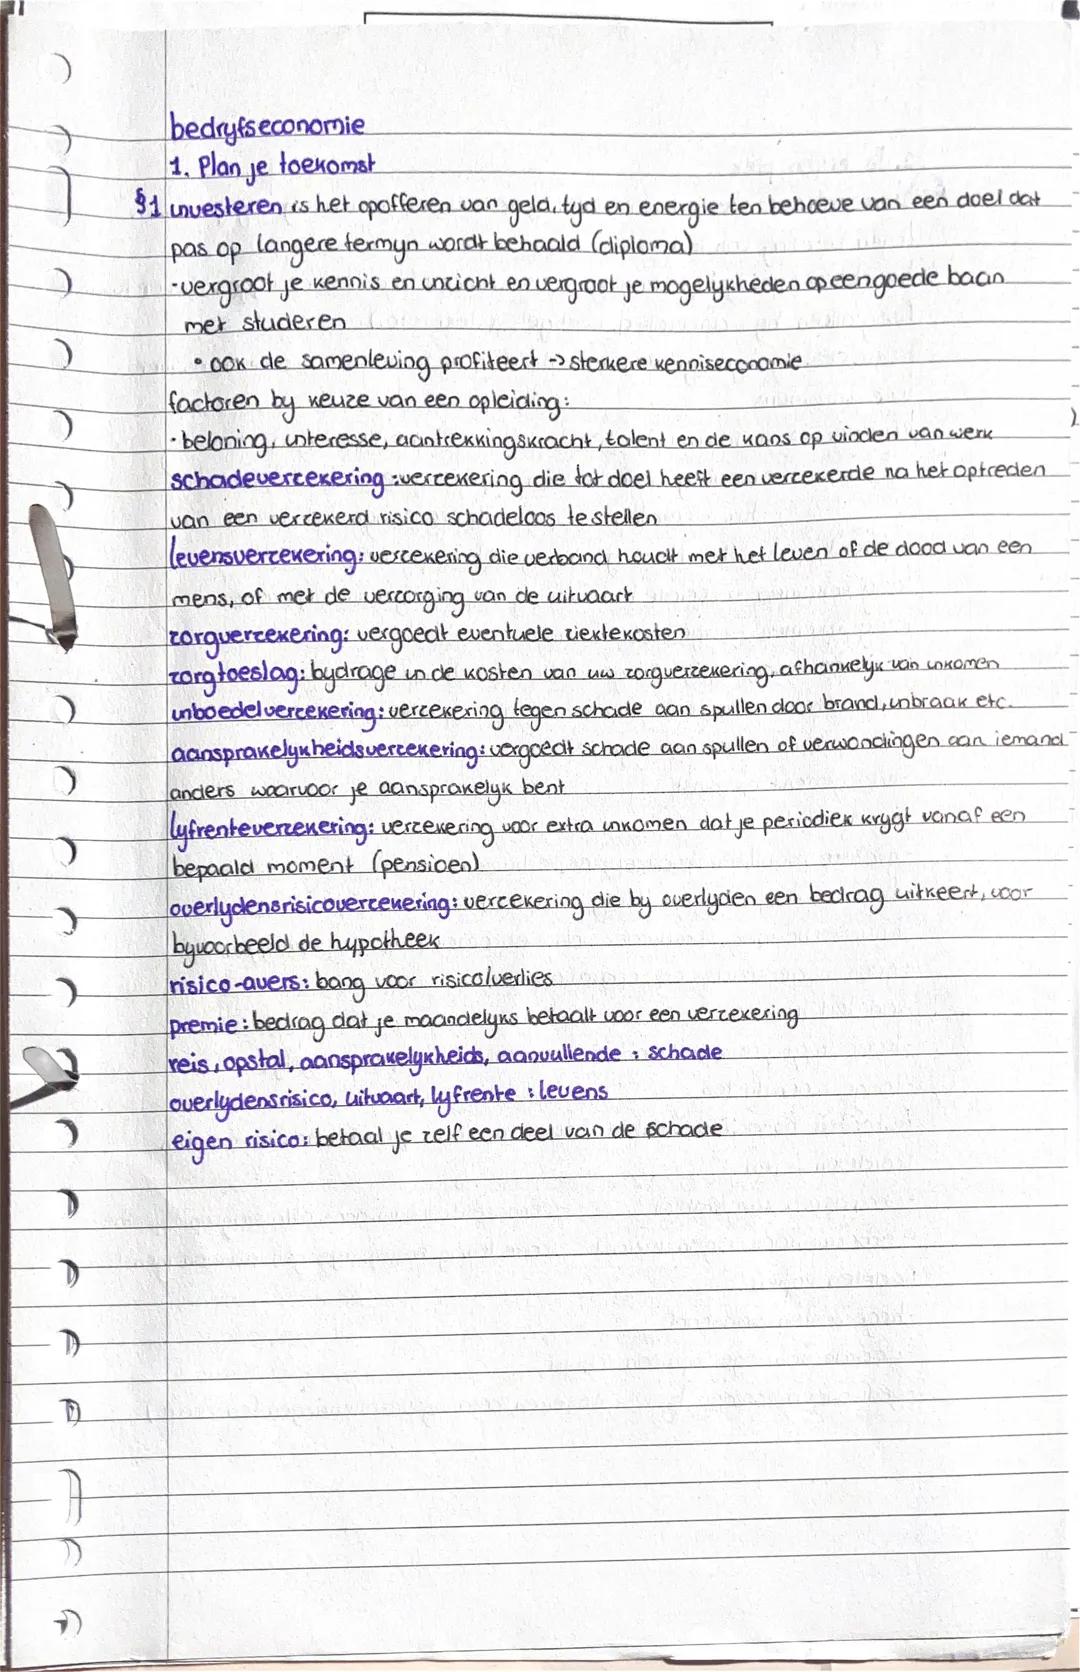 bedryfseconomie
1. Plan je toekomst
§1 investeren is het opofferen van geld, tyd en energie ten behoeve van een doel dat
pas op langere termyn wordt behaald (diploma)
-vergroot je kennis en inzicht en vergroot je mogelykheden op een goede baan
met studeren
• ook de samenleving profiteert -> sterkere kenniseconomie
factoren by keuze van een opleiding:
· beloning, interesse, aantrekkingskracht, talent en de kans op vinden van werk
schadeverzekering : verzekering die tot doel heeft een verzekerde na het optreden
van een verzekerd risico schadeloos te stellen
levensverzekering: verzekering die verband houdt met het leven of de dood van een
mens, of met de verzorging van de uitvaart
zorgverzekering: vergoedt eventuele ziektekosten
zorgtoeslag: bydrage in de kosten van uw zorgverzekering, afhankelyk van inkomen
inboedelverzekering: verzekering tegen schade aan spullen door brand, inbraak etc.
aansprakelykheidsverzekering: vergoedt schade aan spullen of verwondingen aan iemand
anders waarvoor je aansprakelyk bent
lyfrenteverzekering: verzekering voor extra inkomen dat je periodiek krygt vanaf een
bepaald moment (pensioen)
overlydensrisicoverzekering: verzekering die by overlyden een bedrag uitkeert, voor
byvoorbeeld de hypotheek
risico-avers: bang voor risico/verlies
premie: bedrag dat je maandelyks betaalt voor een verzekering
reis, opstal, aansprakelykheids, aanvullende : schade
overlydensrisico, uitvaart, lyfrente : levens
eigen risico: betaal je zelf een deel van de schade